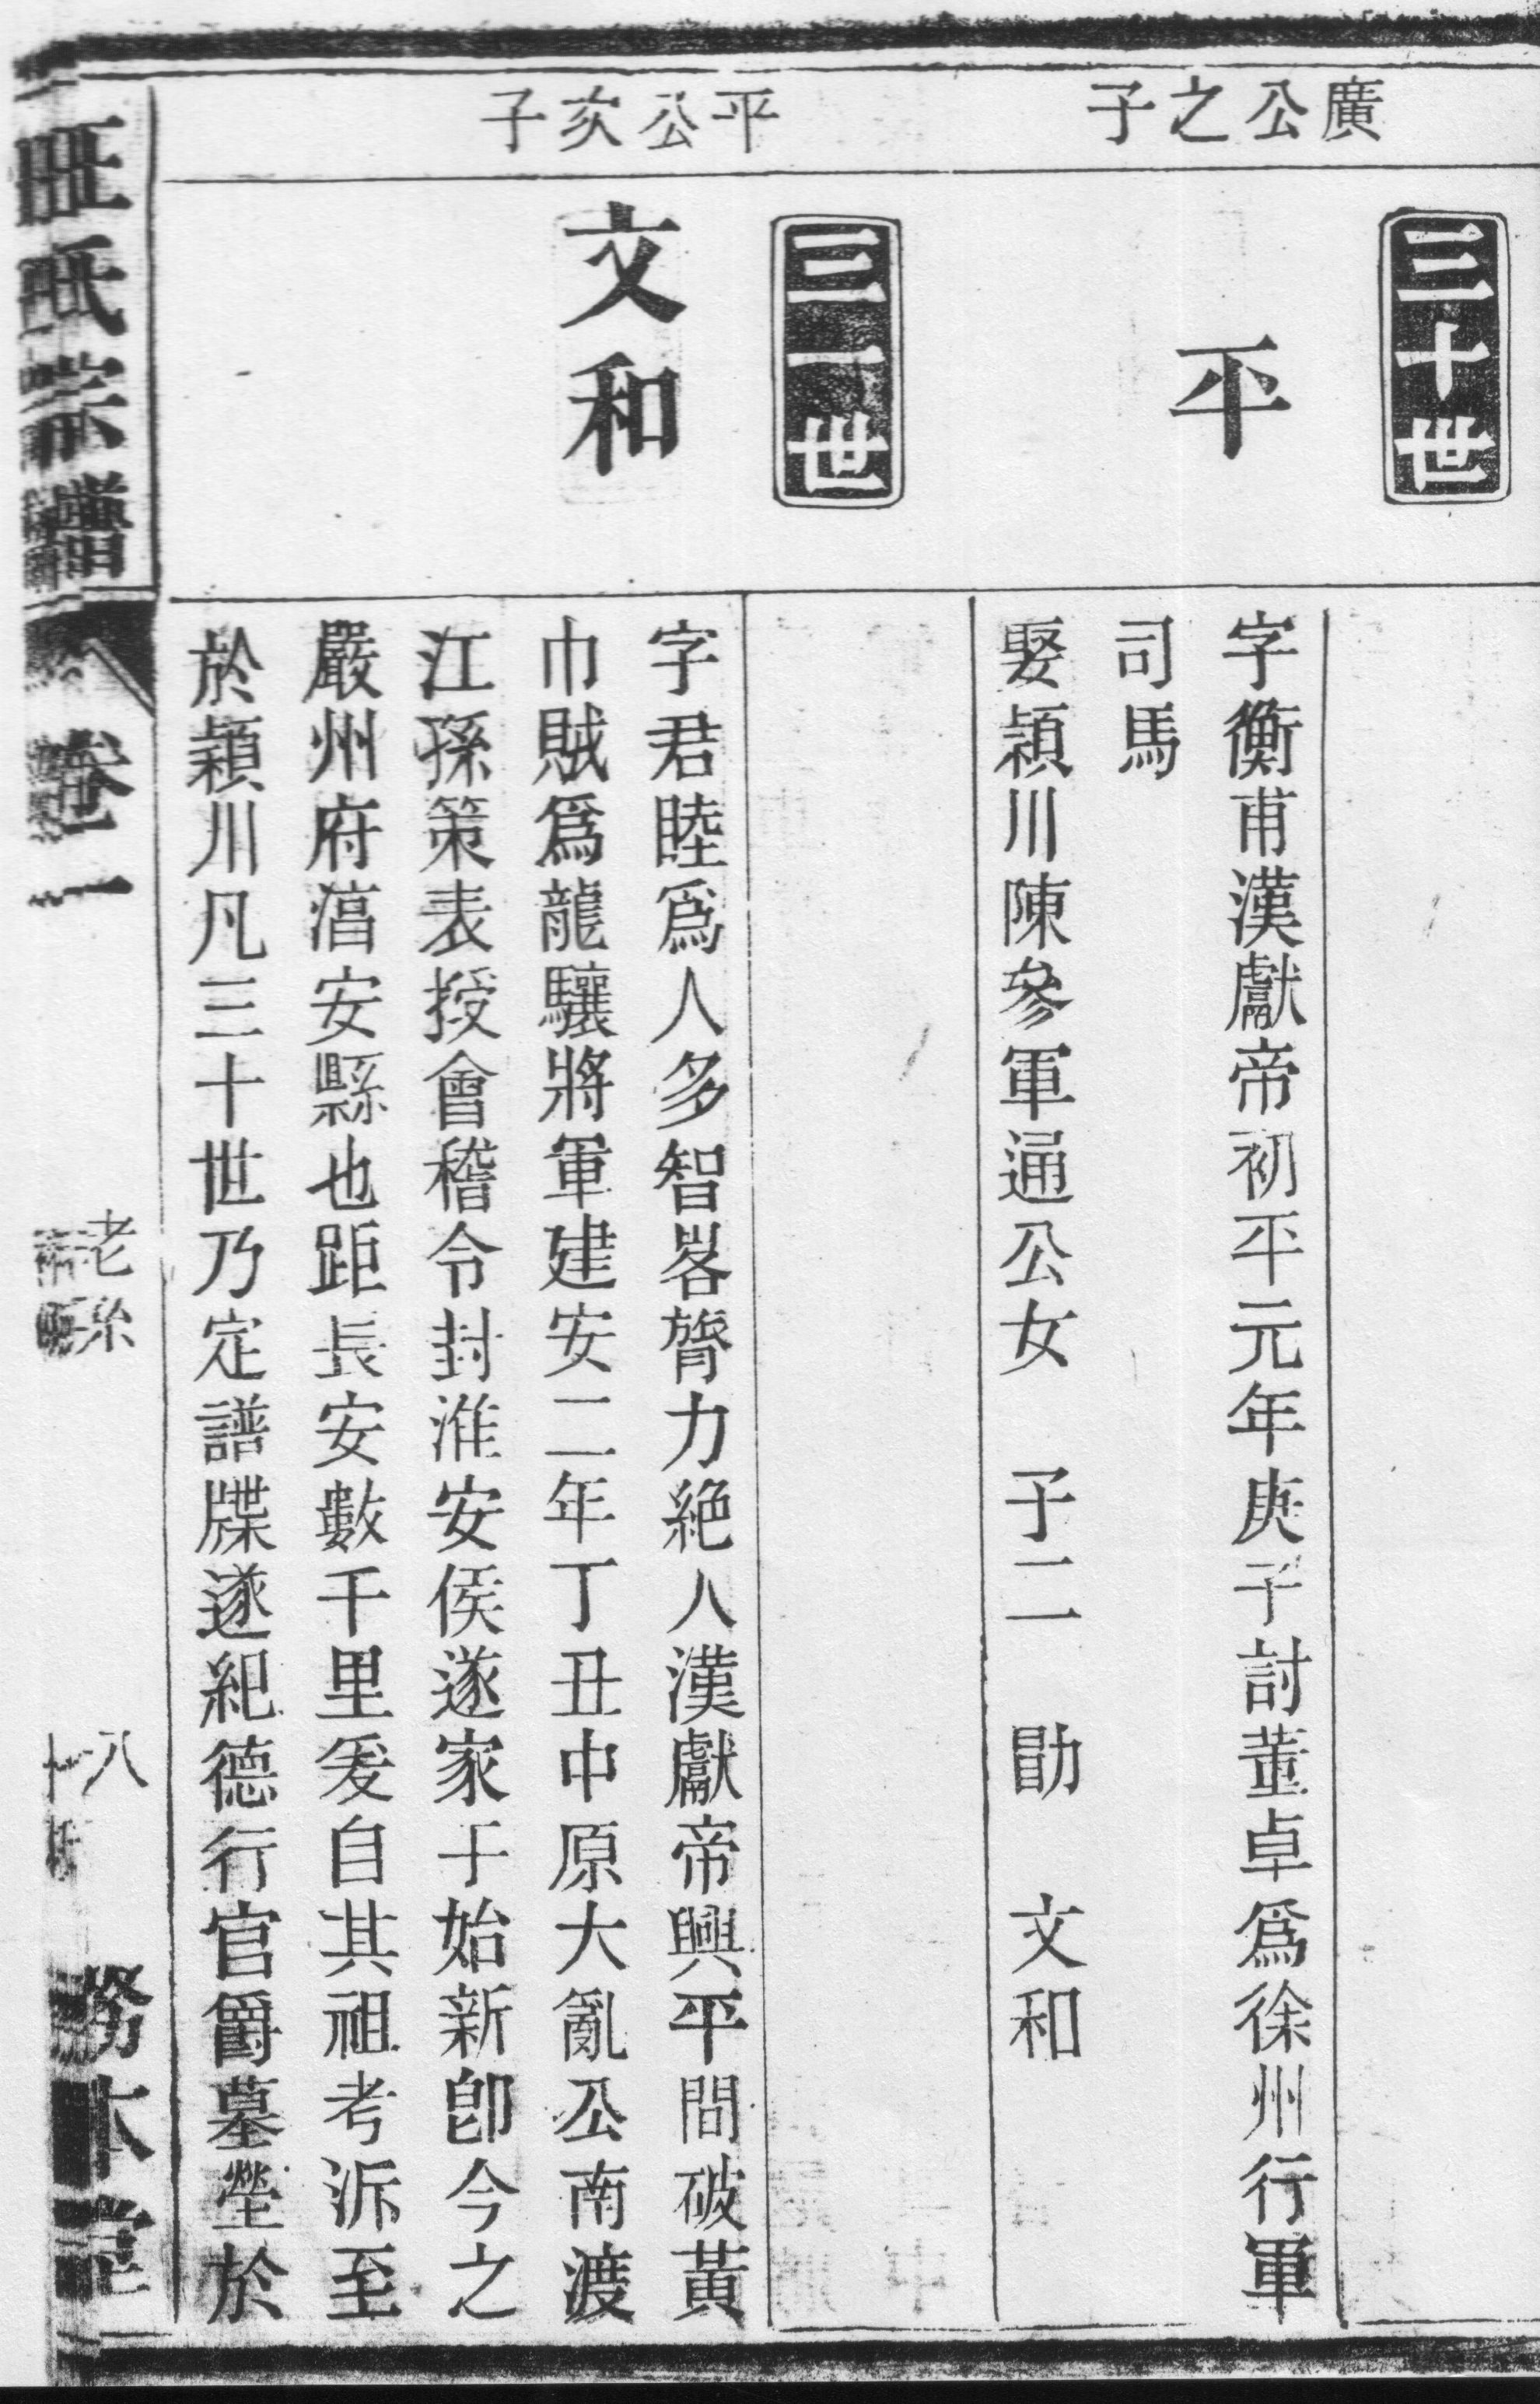 廣公之子
三十世
平
字衡甫漢獻帝初平元年庚子討董卓爲徐州行軍
司馬
娶潁川陳參軍通公女　子二　勖　文和
平公次子
三一世
文和
字君睦爲人多智畧膂力絶人漢獻帝興平間破黃
巾賊爲龍驤將軍建安二年丁丑中原大亂公南渡
江孫策表授會稽令封淮安侯遂家于始新卽今之
嚴州府湻安縣也距長安數千里爰自其祖考泝至
於潁川凡三十世乃定譜牒遂紀德行官爵墓塋於
汪氏宗譜
卷一
老
八
務本堂